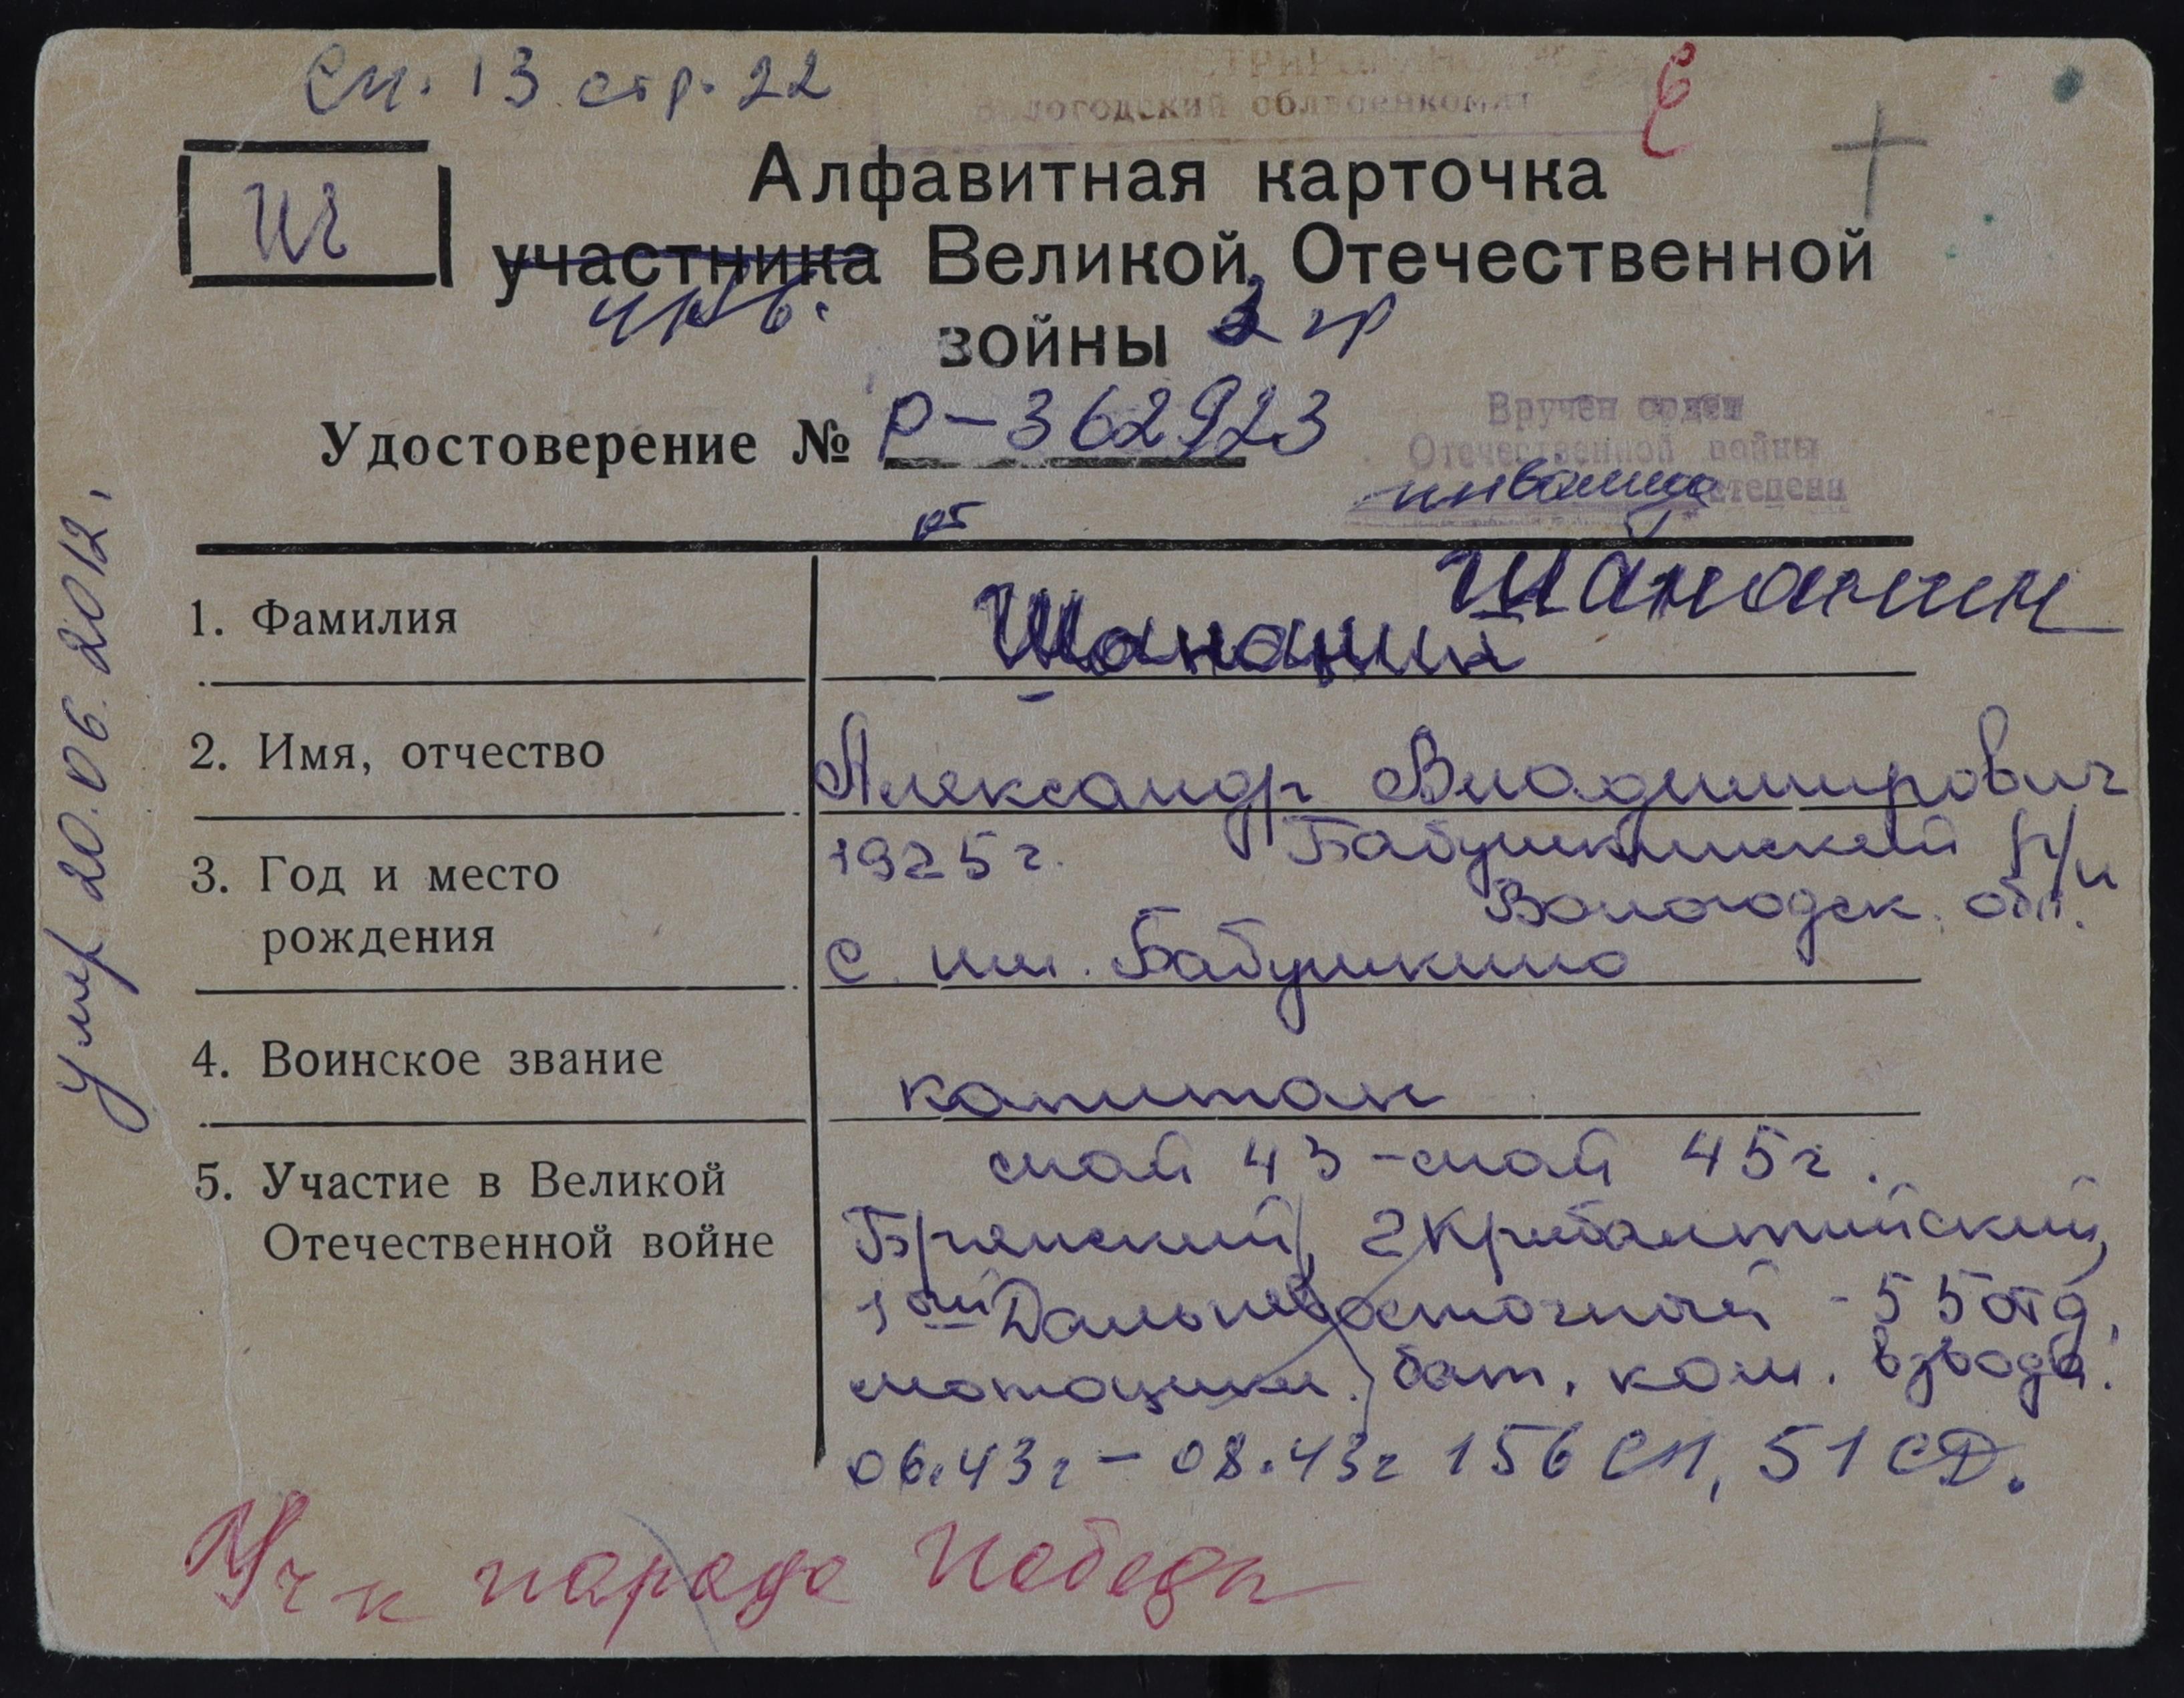 Сп. 13 стр. 22
Вологодский облвоенкомат
Алфавитная карточка
участника Великой Отечественной
инв.
войны 2 гр
Удостоверение № Р-362923
Вручен орден
Отечественной войны
степени
инвалид
Шананин
1. Фамилия Шананин
2. Имя, отчество Александр Владимирович
3. Год и место рождения 1925 г. Бабушкинский р/н
Вологодск. обл.
с. им. Бабушкино
4. Воинское звание капитан
5. Участие в Великой Отечественной войне май 43 - май 45 г.
Брянский, 2 Прибалтийский,
1ый Дальневосточный - 55 отд.
мотоцикл. бат. ком. взвода.
06.43 г - 08.43 г 156 СП, 51 СД.
Уч-к парада Победы
умер 20.06.2012.